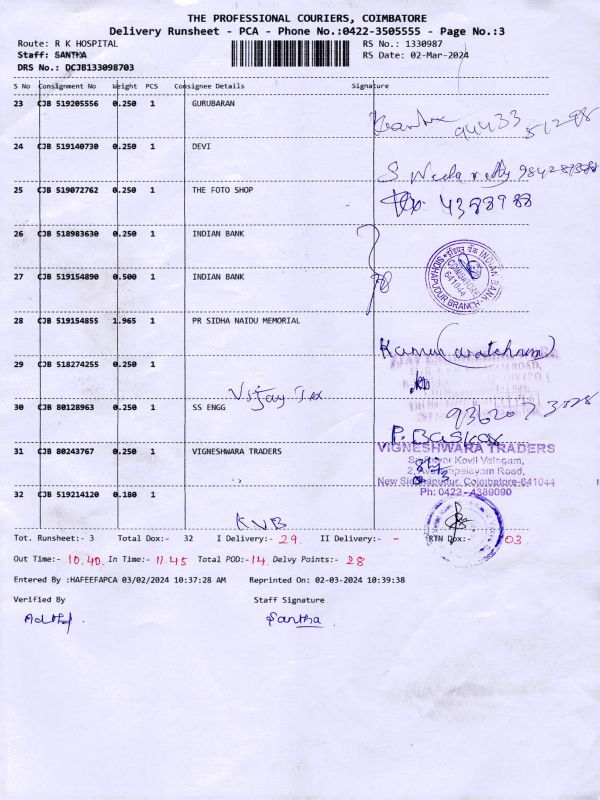 THE PROFESSIONAL COURIERS, COIMBATORE
Delivery Runsheet - PCA - Phone No.:0422-3505555 - Page No.:3
Route: R K HOSPITAL RS No.: 1330987
Staff: SANTHA RS Date: 02-Mar-2024
DRS No.: DCJB133098703
S No Consignment No Weight PCS Consignee Details Signature
23 CJB 519205556 0.250 1 GURUBARAN
94433 51298
24 CJB 519140730 0.250 1 DEVI
25 CJB 519072762 0.250 1 THE FOTO SHOP
4388988
26 CJB 518983630 0.250 1 INDIAN BANK
27 CJB 519154890 0.500 1 INDIAN BANK
इंडियन बैंक INDIAN BANK
COIMBATORE
641044
SIDHAPUDUR BRANCH
28 CJB 519154855 1.965 1 PR SIDHA NAIDU MEMORIAL
Kumar (watchman)
29 CJB 518274255 0.250 1
Vijay Tax
30 CJB 80128963 0.250 1 SS ENGG
P. Baskar
31 CJB 80243767 0.250 1 VIGNESHWARA TRADERS
VIGNESHWARA TRADERS
New Sidhapudur, Coimbatore-641044
Ph: 0422 - 4389090
32 CJB 519214120 0.180 1
KNB
Tot. Runsheet:- 3 Total Dox:- 32 I Delivery:- 29 II Delivery:- - RTN Dox:- 03
Out Time:- 10.40 In Time:- 11.45 Total POD:- 14 Delvy Points:- 28
Entered By :HAFEEFAPCA 03/02/2024 10:37:28 AM Reprinted On: 02-03-2024 10:39:38
Verified By Staff Signature
Santha